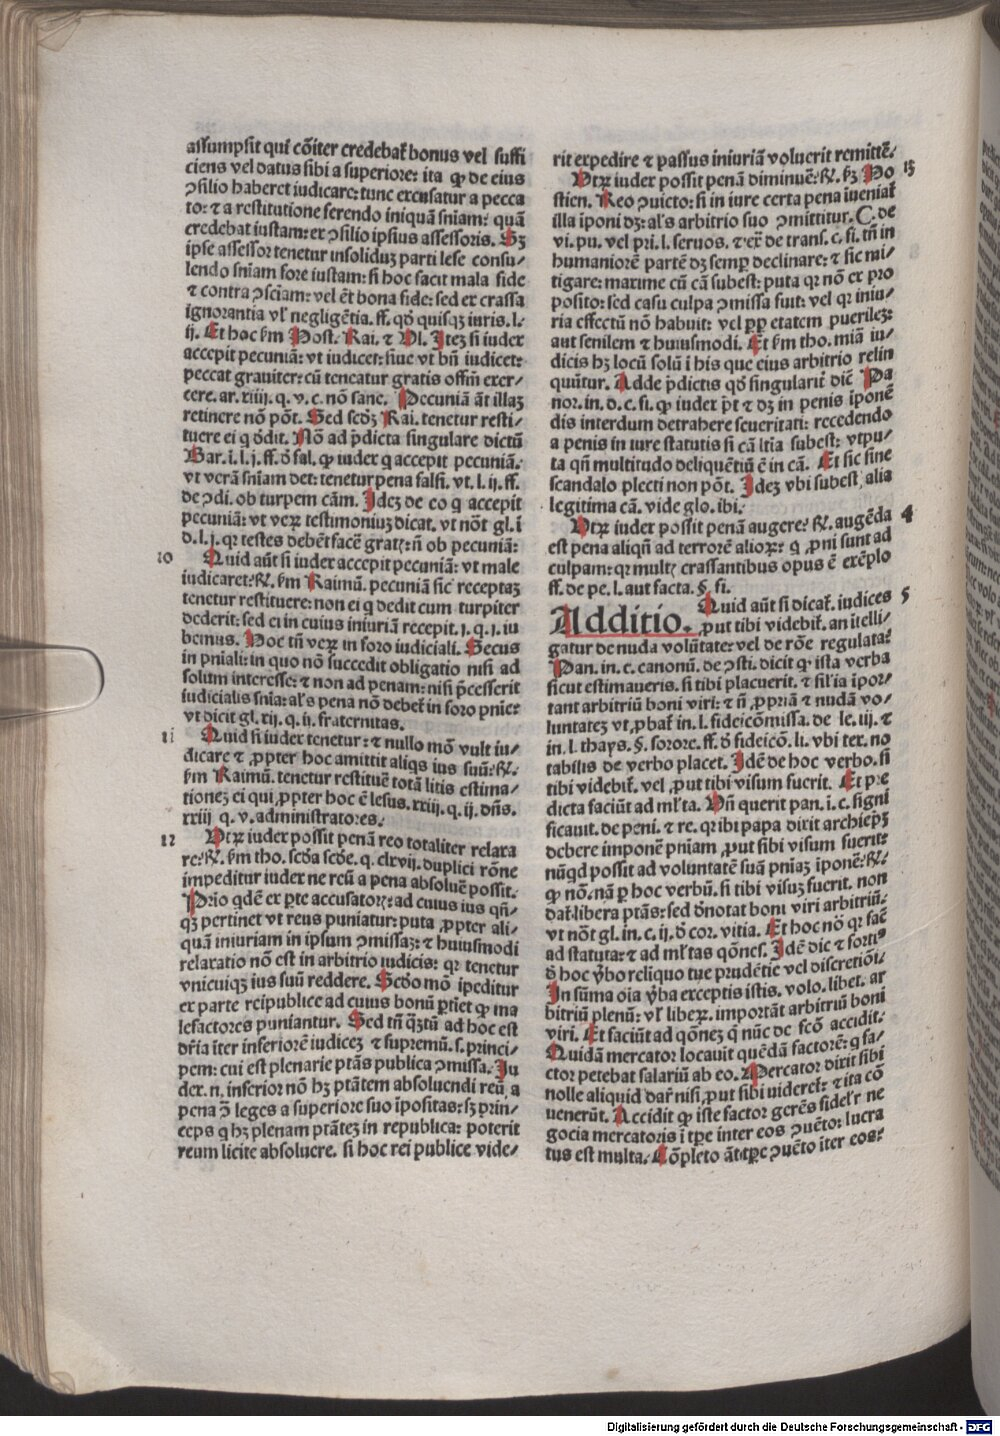 assumpsit qui cōiter credebat̄ bonus vel suffi
ciens vel datus sibi a superiore: ita ꝙ de eius
ꝯsilio haberet iudicare: tunc excusatur a pecca
to: ⁊ a restitutione ferendo iniquā sniam: quā
credebat iustam: ex ꝯsilio ipsius assessoris. Sꝫ
ipse assessor tenetur insoliduꝫ parti lese consu/
lendo sniam fore iustam: si hoc facit mala fide
⁊ contra ꝯsciam: vel ēt bona fide: sed ex crassa
ignorantia vl' negligētia. ff. qđ quisqꝫ iuris. l.
ij. Et hoc ẜm Host. Rai. ⁊ Vl. Iteꝫ si iudex
accepit pecuniā: vt iudicet: siue vt bn̄ iudicet:
peccat grauiter: cū teneatur gratis offm̄ exer/
cere. ar. xiiij. q. v. c. nō sane. Pecuniā āt illaꝫ
retinere nō pōt. Sed scđꝫ Rai. tenetur resti/
tuere ei q đdit. Nō ad p̄dicta singulare dictū
Bar. i. l. j. ff. đ fal. ꝙ iudex q accepit pecuniā:
vt verā sniam det: tenetur pena falsi. vt. l. ij. ff.
de ꝯdi. ob turpem cām. Ideꝫ de eo q accepit
pecuniā: vt veꝝ testimoniuꝫ dicat. vt nōt gl. i
đ. l. j. qꝛ testes debēt facē gratꝭ: n̄ ob pecuniā:
10 Quid aūt si iudex accepit pecuniā: vt male
iudicaret: ℞. ẜm Raimū. pecuniā sic receptaꝫ
tenetur restituere: non ei q dedit cum turpiter
dederit: sed ei in cuius iniuriā recepit. j. q. j. iu
bemus. Hoc tn̄ veꝝ in foro iudiciali. Secus
in pniali: in quo nō succedit obligatio nisi ad
solum interesse: ⁊ non ad penam: nisi p̄cesserit
iudicialis snia: al's pena nō debet̄ in foro pnie:
vt dicit gl. xij. q. ij. fraternitas.
11 Quid si iudex tenetur: ⁊ nullo mō vult iu/
dicare ⁊ ꝓpter hoc amittit aliqs ius suū: ℞.
ẜm Raimū. tenetur restituē totā litis estima/
tioneꝫ ei qui ꝓpter hoc ē lesus. xxiij. q. ij. dn̄s.
xxiij q. v. administratores.
12 Vtꝝ iudex possit penā reo totaliter relaxa
re: ℞. ẜm tho. scđa scđe. q. clxvij. duplici rōne
impeditur iudex ne reū a pena absoluē possit.
Prio qdē ex ꝑte accusatoꝝ: ad cuius ius qn̄/
qꝫ pertinet vt reus puniatur: puta ꝓpter ali/
quā iniuriam in ipsum ꝯmissaꝫ: ⁊ huiusmodi
relaxatio nō est in arbitrio iudicis: qꝛ tenetur
vnicuiqꝫ ius suū reddere. Scđo mō ipeditur
ex parte reipublice ad cuius bonū ꝑtiet ꝙ ma
lefactores puniantur. Sed tn̄ qꝫtū ad hoc est
dr̄ia iter inferiorē iudiceꝫ ⁊ supremū. s. princi/
pem: cui est plenarie ptās publica ꝯmissa. Iu
dex. n. inferior nō hꝫ ptātem absoluendi reū a
pena ꝯ̄ leges a superiore suo ipositas: sꝫ prin/
ceps q hꝫ plenam ptāteꝫ in republica: poterit
reum licite absoluere. si hoc rei publice vide/
rit expedire ⁊ passus iniuriā voluerit remittē.
13 Vtꝝ iudex possit penā diminuē: ℞. ẜꝫ Ho
stien. Reo ꝯuicto: si in iure certa pena iueniat̄
illa iponi dꝫ: al's arbitrio suo ꝯmittitur. C. de
vi. pu. vel pri. l. seruos. ⁊ ex̄ de trans. c. fi. tn̄ in
humaniorē partē dꝫ semꝑ declinare: ⁊ sic mi/
tigare: maxime cū cā subest: puta qꝛ nō ex pro
posito: sed casu culpa ꝯmissa fuit: vel qꝛ iniu/
ria effectū nō habuit: vel ꝓp etatem puerileꝫ:
aut senilem ⁊ huiusmodi. Et ẜm tho. miā iu/
dicis hꝫ locū solū i his que eius arbitrio relin
quūtur. Adde p̄dictis qđ singularit̄ dic̄ Pa
nor. in. d. c. fi. ꝙ iudex p̄t ⁊ dꝫ in penis iponē
dis interdum detrahere seueritati: recedendo
a penis in iure statutis si cā ltīa subest: vtpu/
ta qn̄ multitudo deliquētiū ē in cā. Et sic sine
scandalo plecti non pōt. Ideꝫ vbi subest alia
legitima cā. vide glo. ibi.
4 Vtꝝ iudex possit penā augere: ℞. augēda
est pena aliqn̄ ad terrorē alioꝝ: q ꝓni sunt ad
culpam: qꝛ multꝭ crassantibus opus ē exēplo
ff. de pe. l. aut facta. §. fi.
Additio. Quid aūt si dicat̄. iudices 5
ꝓut tibi videbit̄. an itelli/
gatur de nuda volūtate: vel de rōe regulata:
Pan. in. c. canonū. de ꝯsti. dicit ꝙ ista verba
sicut estimaueris. si tibi placuerit. ⁊ sil'ia ipor/
tant arbitriū boni viri: ⁊ n̄ ꝓpriā ⁊ nudā vo/
luntateꝫ vt ꝓbat̄ in. l. fideicōmissa. de le. iij. ⁊
in. l. thays. §. sorore. ff. đ fideicō. li. vbi tex. no
tabilis de verbo placet. Idē de hoc verbo. si
tibi videbit̄. vel ꝓut tibi visum fuerit. Et pre
dicta faciūt ad ml'ta. Vn̄ querit pan. i. c. signi
ficauit. de peni. ⁊ re. qꝛ ibi papa dixit archiep̄ꝫ
debere imponē pniam ꝓut sibi visum fuerit:
nūqd possit ad voluntatē suā pniaꝫ iponē: ℞.
ꝙ nō. nā ꝑ hoc verbū. si tibi visuꝫ fuerit. non
dat̄ libera ptās: sed đnotat boni viri arbitriū.
vt nōt gl. in. c. ij. đ cor. vitia. Et hoc nō ꝙ facē
ad statuta: ⁊ ad ml'tas qōnes. Idē dic ⁊ fortiꝰ
đ hoc v̄bo reliquo tue prudētie vel discretiōi.
In sūma oīa v̄ba exceptis istis. volo. libet. ar
bitriū plenū: vl' libeꝝ. importāt arbitriū boni
viri. Et faciūt ad qōneꝫ q̄ nūc de fcō accidit.
Quidā mercator locauit quēdā factorē: q fa/
ctor petebat salariū ab eo. Mercator dixit sibi
nolle aliquid dar̄ nisi ꝓut sibi videret̄: ⁊ ita cō
uenerūt. Accidit ꝙ iste factor gerēs fidel'r ne
gocia mercatoris ī tꝑe inter eos ꝯuēto: lucra
tus est multa. Cōpleto āt tꝑe ꝯuēto iter eos:
Digitalisierung gefördert durch die Deutsche Forschungsgemeinschaft - DFG